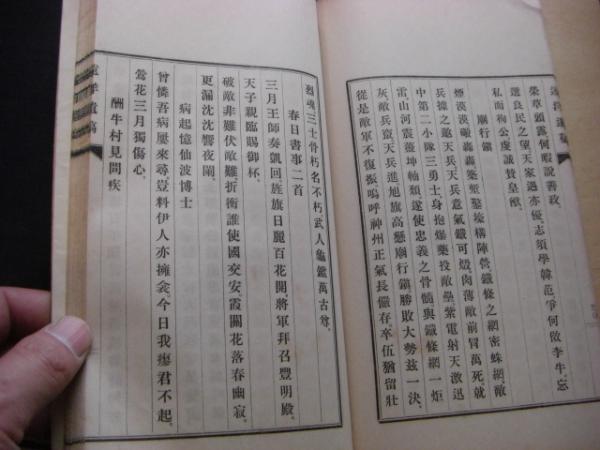 榮草頭露何暇説善政
選良民之望天家過亦優志須學韓范爭何倣李牛忘
私而徇公虔誠贊皇猷
廟行鎮
煙漠漠砲轟轟築塹壕構陣營鐵條之網密蛛網敵
兵據之邀天兵天兵意氣鐵可燬肉薄敵前冒萬死就
中第二小隊三勇士身抱爆藥投敵壘紫電射天激迅
雷山河震蕩坤軸頽遂使忠義之骨髓與鐵條網一炬
灰敵兵竄天兵進旭旗高懸廟行鎮勝敗大勢茲一決
從是敵軍不復振嗚呼神州正氣長儼存卒伍猶留壯
烈魂三士骨朽名不朽武人龜鑑萬古尊
春日書事二首
三月王師奏凱回旌旗日麗百花開將軍拜召豐明殿
天子親臨賜御杯
破敵非難伏敵難折衝誰使國交安霞關花落春幽寂
更漏沈沈響夜闌
病起憶仙波博士
曾憐吾病屢來尋豈料伊人亦擁衾今日我痊君不起
鶯花三月獨傷心
酬牛村見問疾